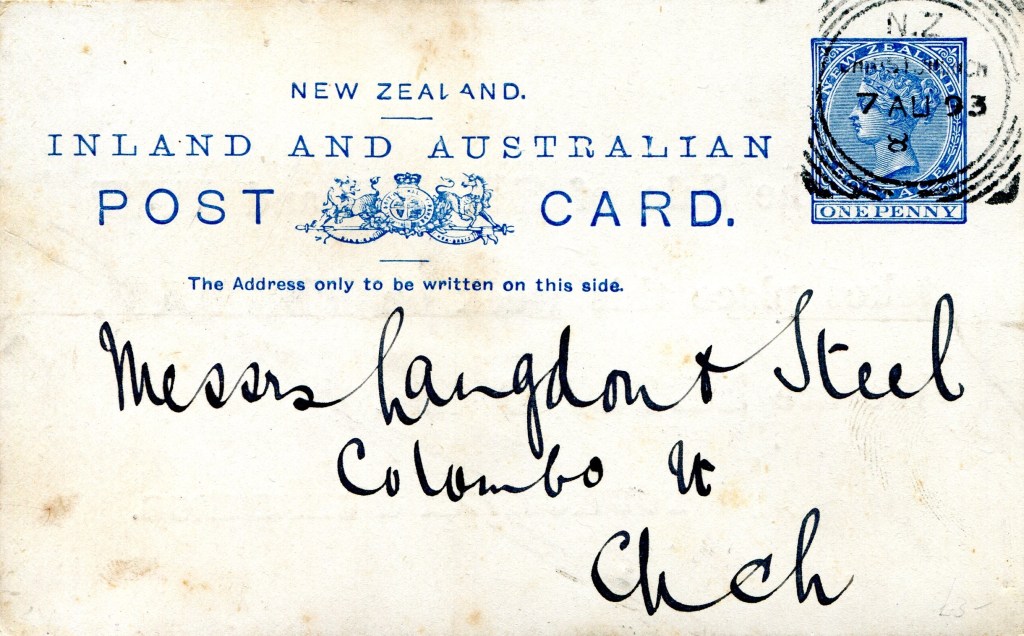 N.Z
CHRISTCHURCH
7 AU 93
8
NEW ZEALAND
ONE PENNY
NEW ZEALAND.
INLAND AND AUSTRALIAN
POST CARD.
The Address only to be written on this side.
Messrs Langdon & Steel
Colombo St
Ch Ch